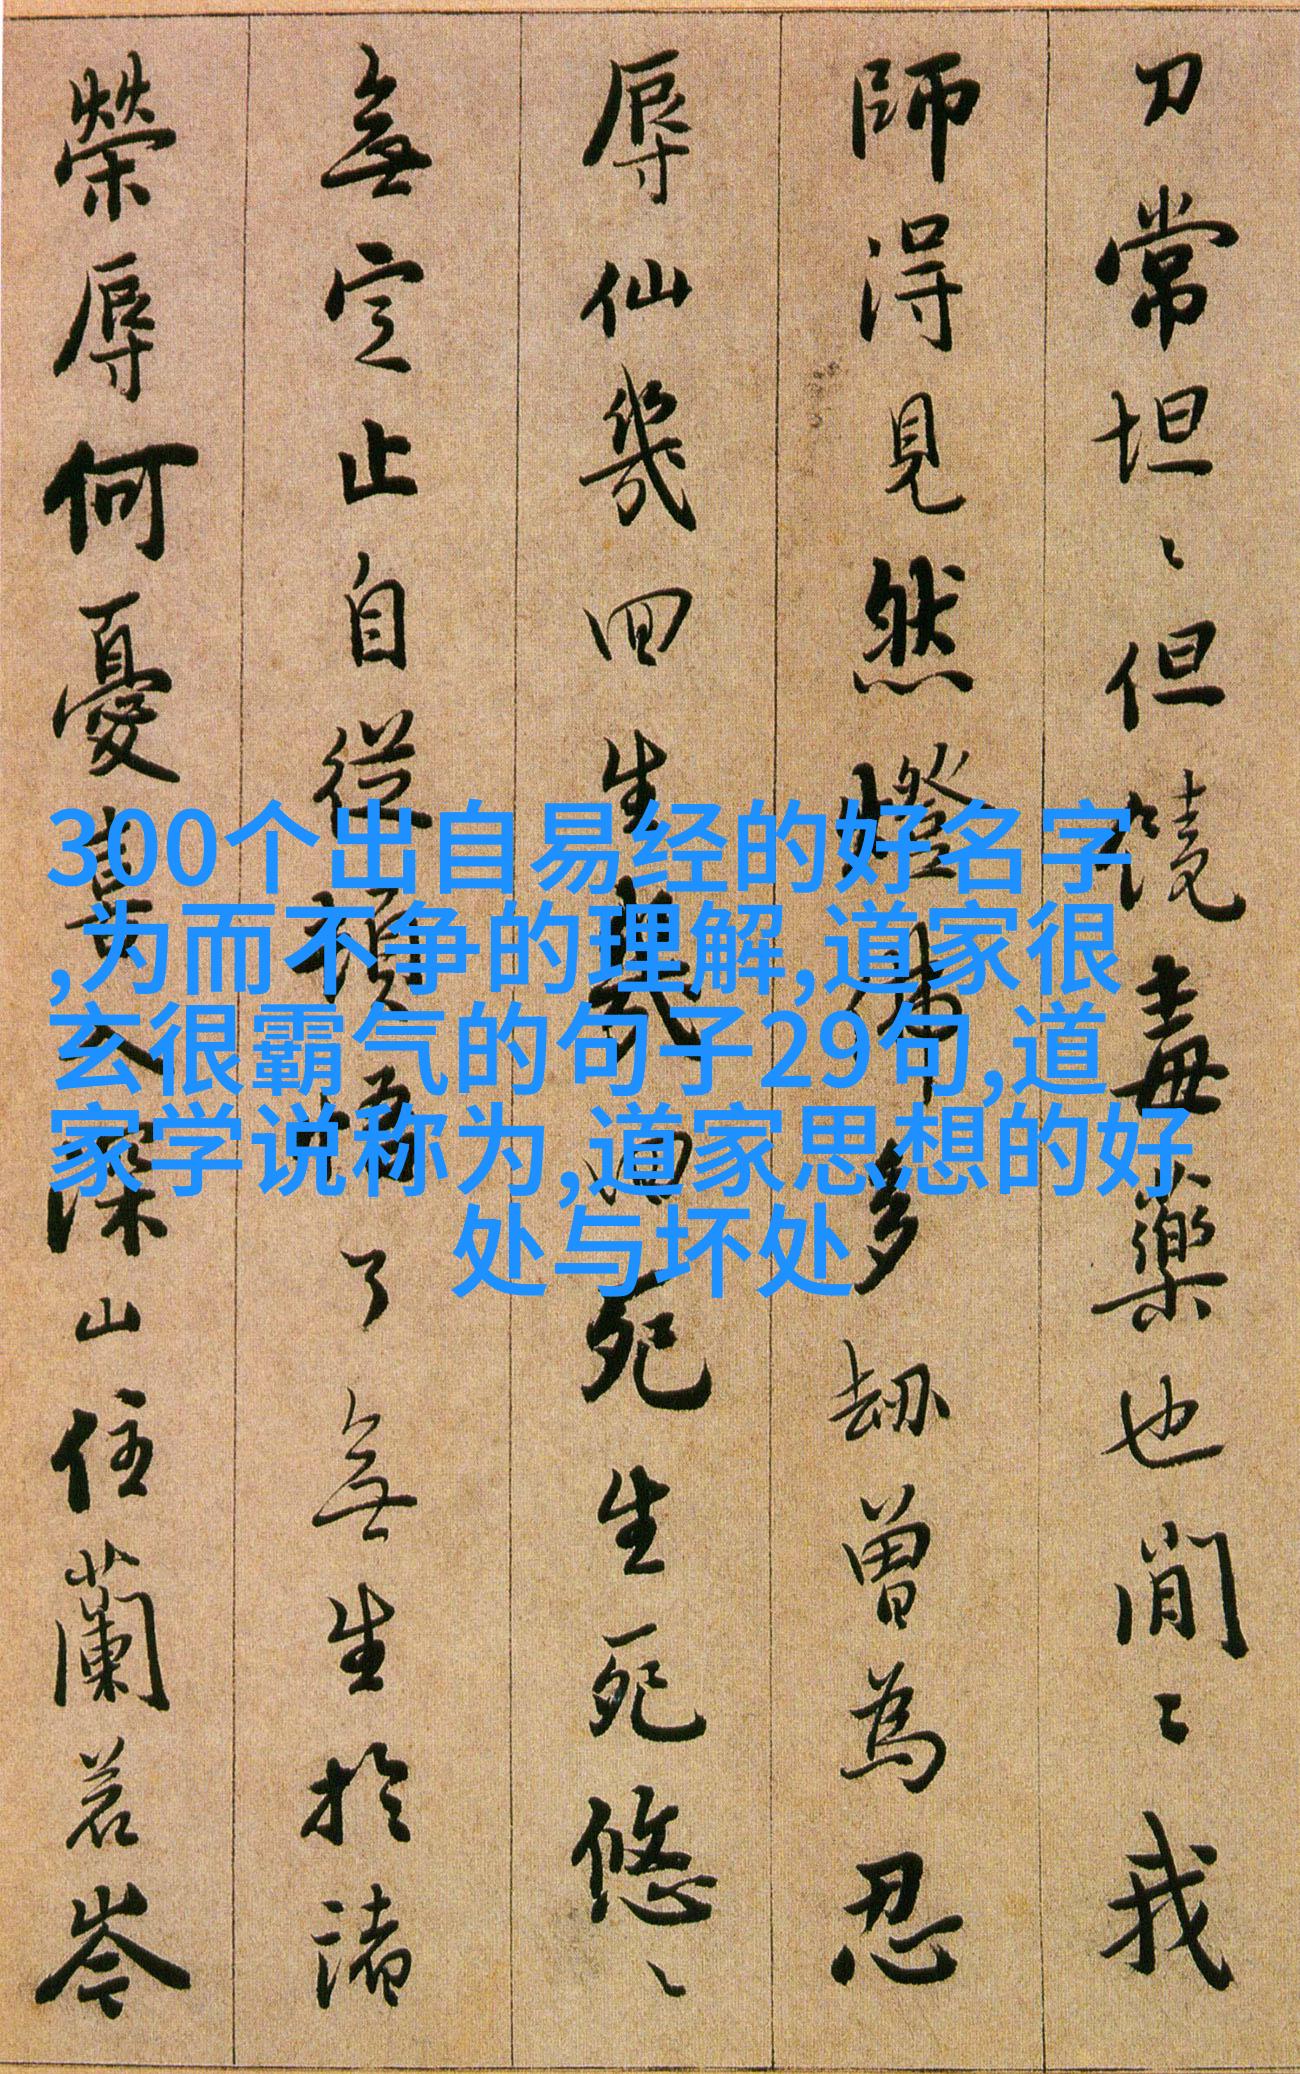 刀常坦〻但饒毒藥也閒〻我
師得見然燈佛多劫曾為忍
辱仙幾回生幾回死生死悠〻
無定止自從頓悟了無生於諸
榮辱何憂喜入深山住蘭若岑
300个出自易经的好名字
,为而不争的理解,道家很
玄很霸气的句子29句,道
家学说称为,道家思想的好
处与坏处